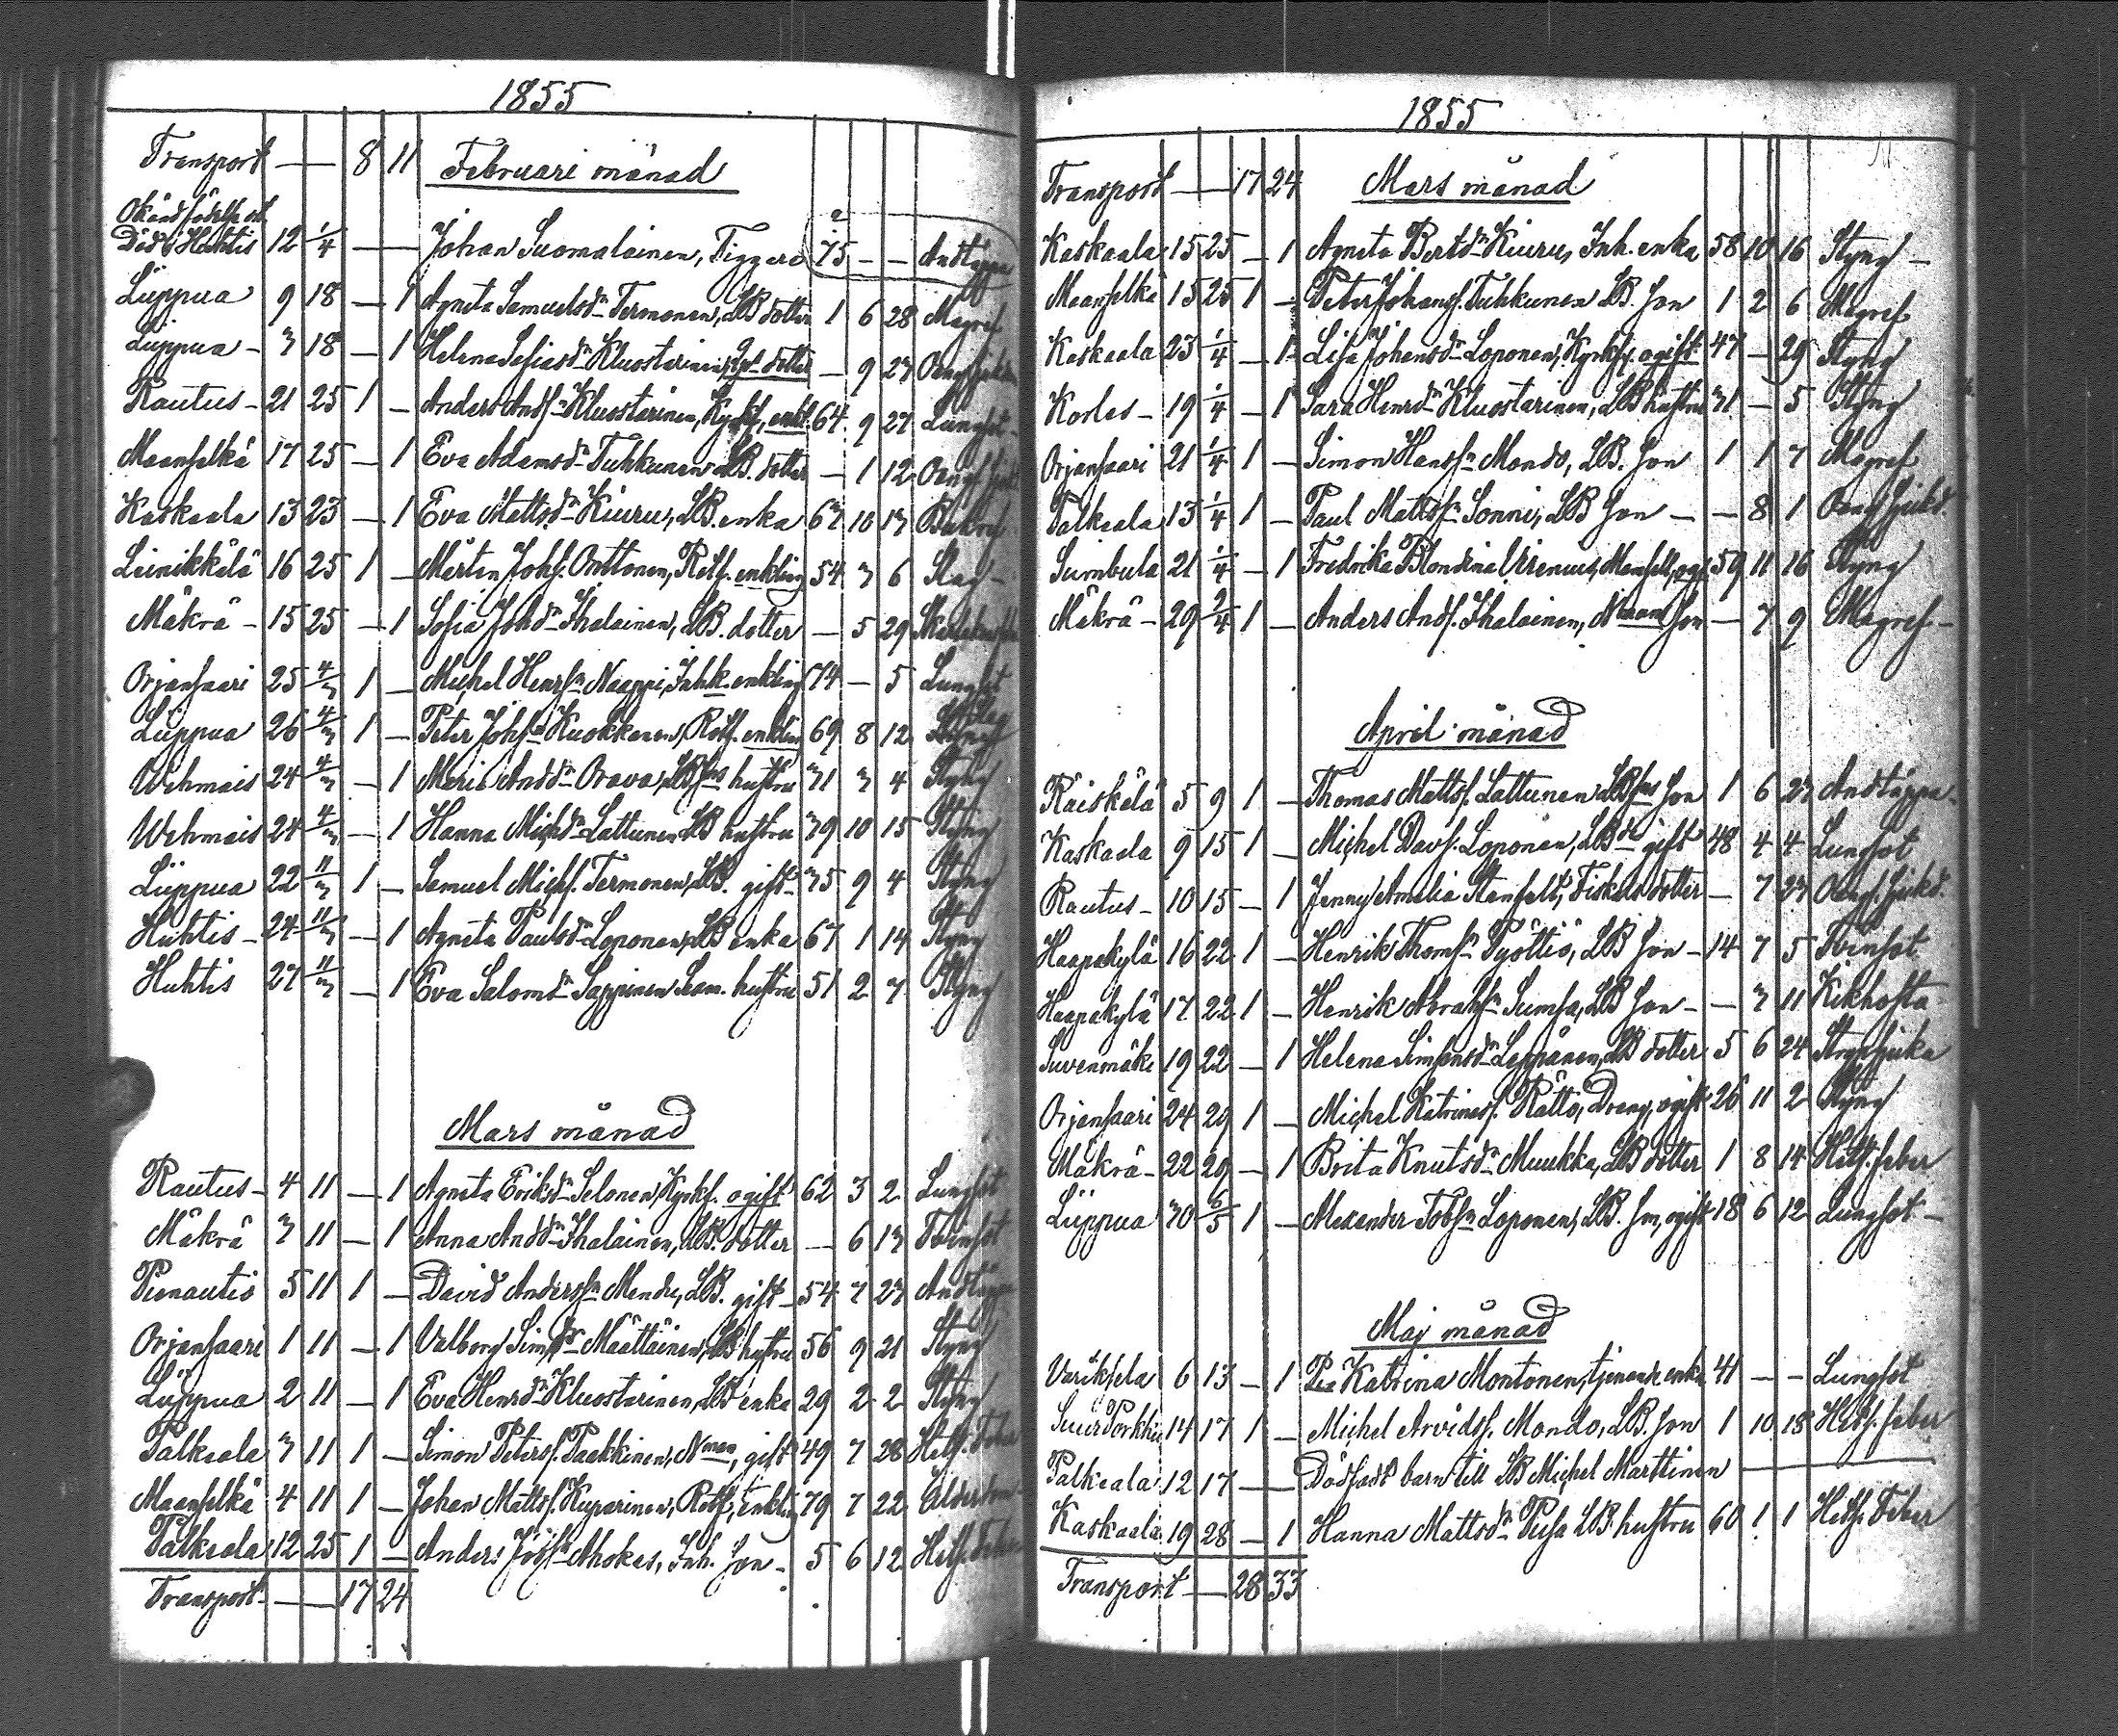 1855
Transport — — 8 11 Februari månad
Okänd födelse ort
Död i Huhtis 12 1/4 — — Johan Suomalainen, Tiggare 75 — — Andtäppa
Lüppua 9 18 — 1 Agneta Samuelsdr Termonen, LB dotter 1 6 28 Magref
Lüppua - 3 18 — 1 Helena Sefiasdr Kluostarinen, dotter — 9 23
Rautus - 21 25 1 — Anders Andsn Kluostarinen, Kyrkf. enkl. 64 9 27 Lungsot
Maanselkä 17 25 — 1 Eva Adamsdr Tuhkunen LB. dotter — 1 12
Kaskaala 13 23 — 1 Eva Mattsdr Kiuru, LB. enka 63 10 13
Leinikkälä 16 25 1 — Mårten Johs. Onttonen, Rotf. enkling 54 3 6 Slag -
Mäkrä - 15 25 — 1 Sofia Johdr Ihalainen, LB. dotter — 5 29
Orjansaari 25 4/3 1 — Michel Henrsn Naappi, Inh. enkling 74 — 5 Lungsot
Lüppua 26 4/3 1 — Peter Johsn Kuokkanen, Rotf. enkling 69 8 12
Wehmais 24 4/3 — 1 Maria Andsdr Orava, LBdes hustru 31 3 4 Styng
Wehmais 24 4/3 — 1 Hanna Michsdr Lattunen LB hustru 39 10 15 Styng
Lüppua 22 11/3 1 — Samuel Michs. Termonen, LB. gift - 35 9 4 Styng
Huhtis - 24 11/3 — 1 Agneta Paulsdr Loponen, LB enka 67 1 14 Styng
Huhtis 27 11/3 — 1 Eva Salomdr Sappinen hustru 51 2 7 Styng
Mars månad
Rautus - 4 11 — 1 Agneta Eriksdr Selonen, Kyrkf. ogift 62 3 2 Lungsot
Mäkrä 3 11 — 1 Anna Andsdr Ihalainen, LB. dotter — 6 13 Tvinsot
Pienautio 5 11 1 — David Anderssn Mendu, LB. gift - 54 7 23 Andtäppa
Orjansaari 1 11 — 1 Valborg Simsdr Määttäinen, LB hustru 56 9 21 Styng
Lüppua 2 11 — 1 Eva Henrdr Kluostarinen, LB enka 29 2 2 Styng
Palkeala 3 11 1 — Simon Peters. Paakkinen, Nman, gift 49 7 28 Hets. Feber
Maanselkä 4 11 1 — Johan Matts. Kuparinen, Rotf, enkling 79 7 22 Ålderdom
Palkeala 12 25 1 — Anders Josfsn Ahokas, Inh. son - 5 6 12 Hets. Feber
Transport - — — 17 24
1855
Transport — — 17 24 Mars månad
Kaskaala 15 25 — 1 Agneta Bertdr Kiuru, Inh. enka 58 10 16 Styng -
Maanselkä 15 25 1 — Peter Johans. Tuhkunen LB. son 1 2 6 Magref
Kaskaala 23 1/4 — 1 Lisa Johansdr Loponen, Kyrkhj. ogift 47 — 29 Styng
Korles - 19 1/4 — 1 Sara Henrdr Kluostarinen, LB hustru 31 — 5 Styng
Orjansaari 21 1/4 1 — Simon Hanssn Mondo, LB. son 1 1 7 Magref
Palkeala 13 1/4 1 — Paul Mattssn Sonni, LB son — — 8 1 Oang. sjukd.
Sumbula 21 1/4 — 1 Fredrika Blondina Virenius, Mamsell, ogift 59 11 16 Styng
Mäkrä - 29 2/4 1 — Anders Ands. Ihalainen, Nmans son — 7 9 Magref -
April månad
Räiskälä 5 9 1 — Thomas Matts. Lattunen LBdes son 1 6 23 Andtäppa -
Kaskaala 9 15 1 — Michel Davs. Loponen, LBde gift 48 4 4 Lungsot
Rautus - 10 15 — 1 Jenny Amalia Stenfelt, Fiskals dotter — 7 23 Oang. sjukd.
Haapakylä 16 22 1 — Henrik Thomsn Pyöttiö, LB son - 14 7 5 Tvinsot
Haapakylä 17 22 1 — Henrik Abrahsn Sumsa, LB son - — 3 11 Kikhosta
Suvenmäki 19 22 — 1 Helena Simonsdr Leppänen, LB dotter 5 6 24
Orjansaari 24 29 1 — Michel Katrinas. Rätto, Dräng, ogift 26 11 2 Styng
Mäkrä - 22 29 — 1 Brita Knutsdr Muukka, LB dotter 1 8 14 Hets. feber
Lüppua 30 6/5 1 — Alexander Tobsn Loponen, LB. son, ogift 18 6 12 Lungsot -
Maj månad
Variksela 6 13 — 1 Katrina Montonen, tjenande enka 41 — — Lungsot
Suur Porkku 14 17 1 — Michel Arvids. Mondo, LB. son 1 10 18 Hets. feber
Palkeala 12 17 — — Dödfödt barn till LB Michel Marttinen
Kaskaala 19 28 — 1 Hanna Mattsdr Pusa LB. hustru 60 1 1 Hets. Feber
Transport — — 28 33